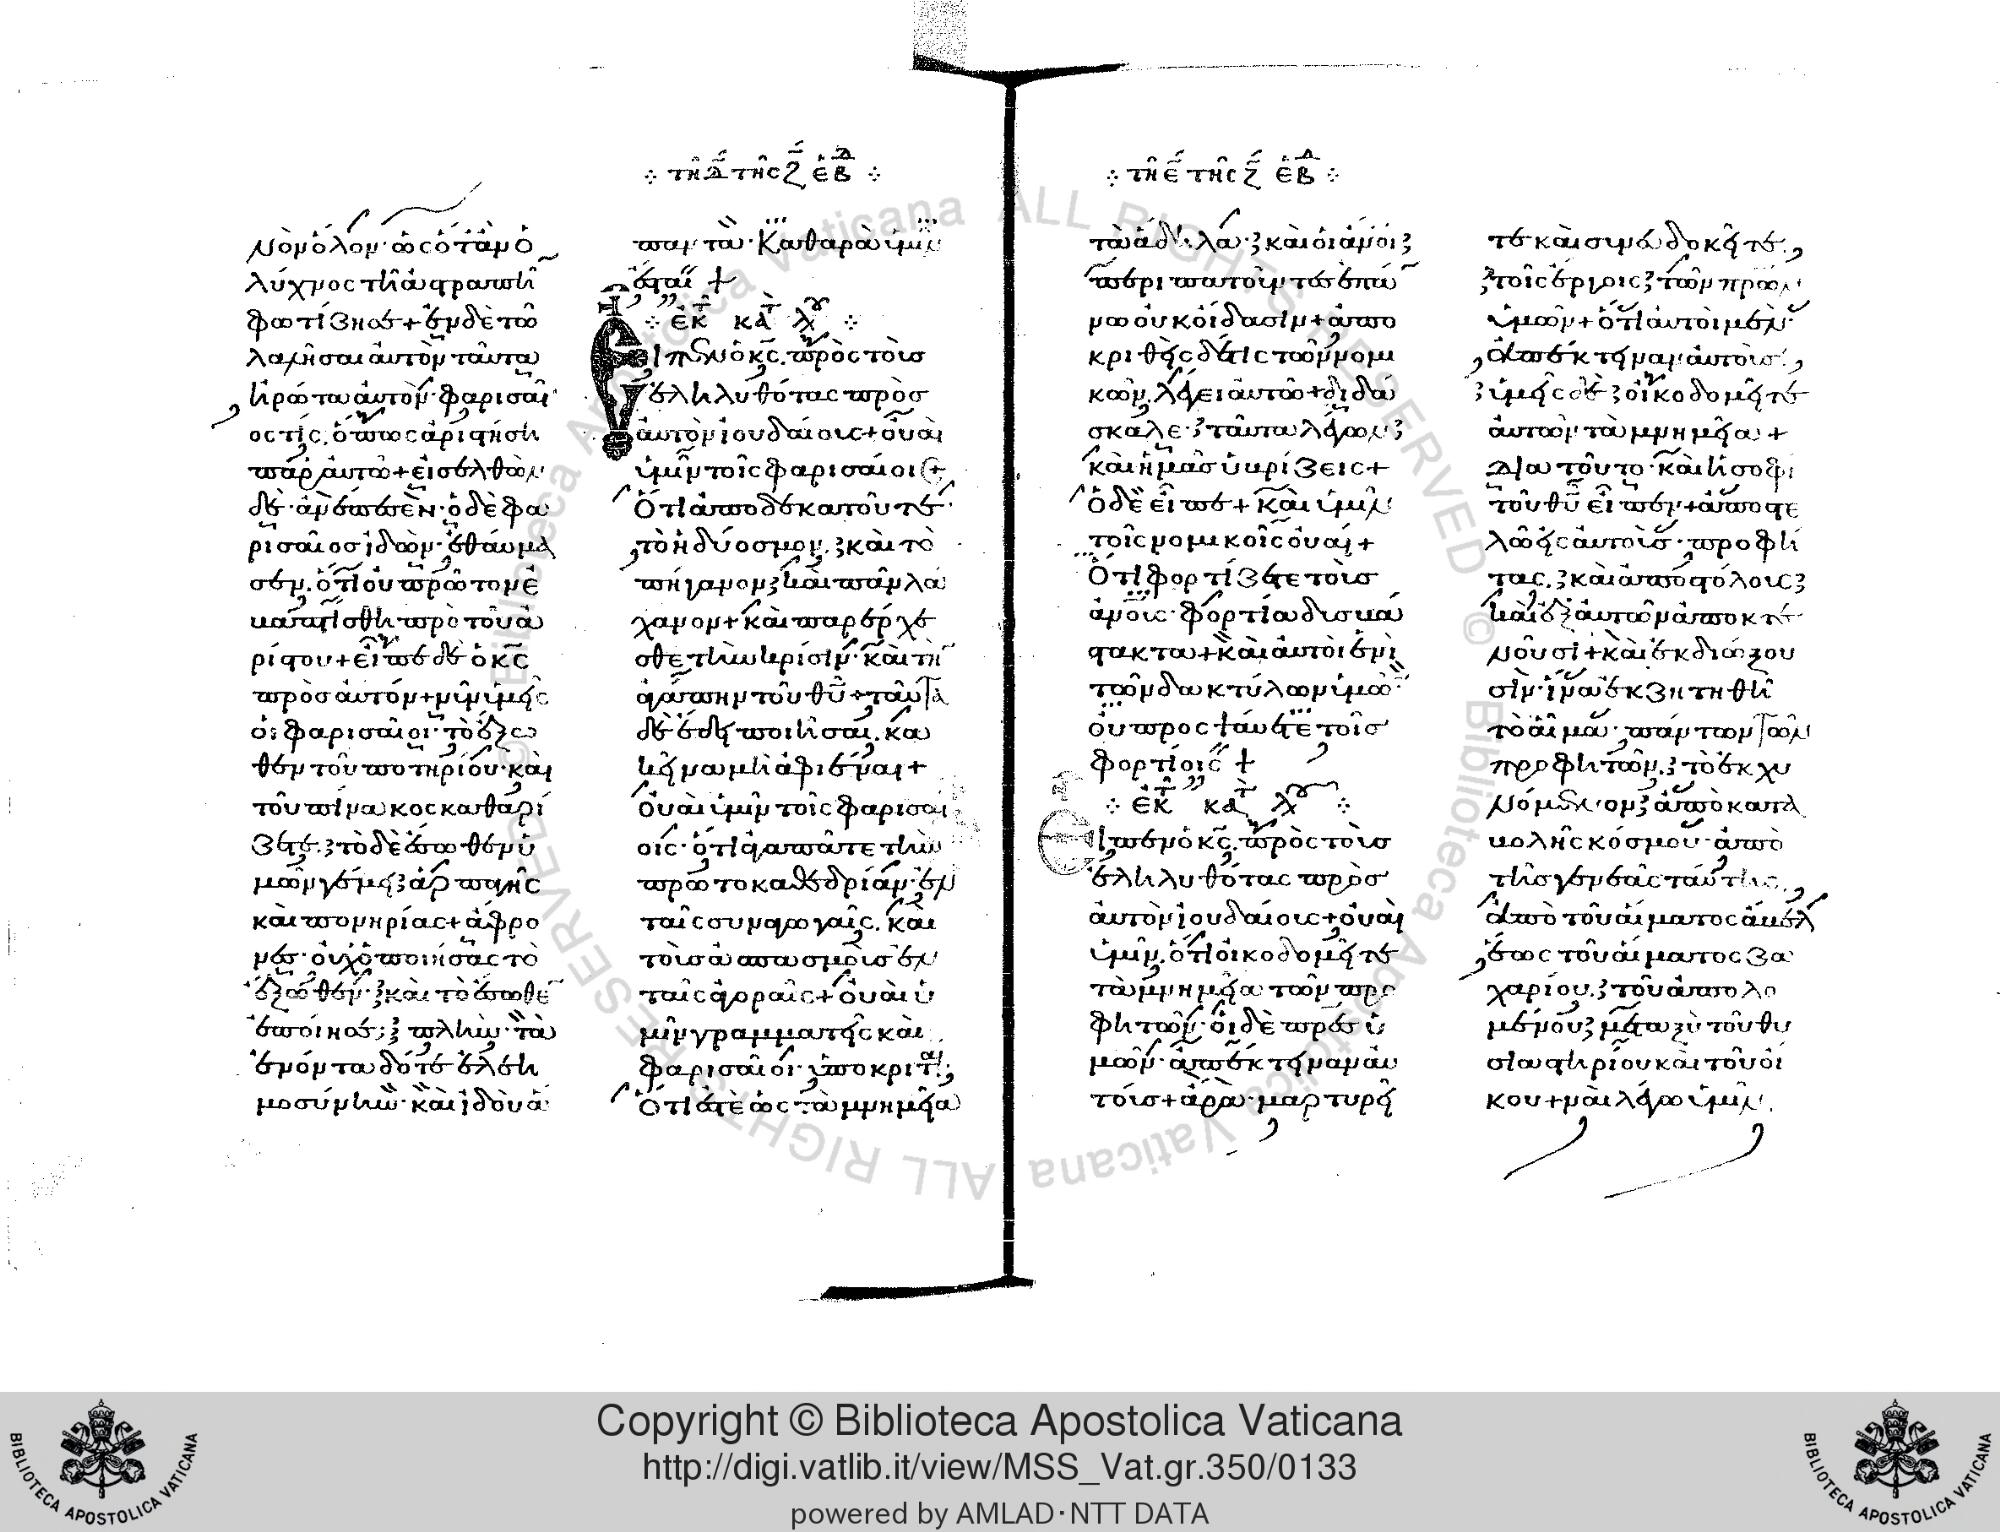 ⁘ τῆ δ̅ τῆς ζ̅ ἑβδ ⁘
νὸν ὅλον· ὡς ὅταν ὁ
λύχνος τῆ ἀστραπῆ
φωτίζη σε + ἐν δὲ τῶ
λαλῆσαι αὐτὸν ταῦτα
ἠρώτα αὐτὸν φαρισαῖ
ος τίς, ὅπως ἀριστήση
παρ' αὐτῶ + εἰσελθὼν
δὲ ἀνέπεσεν· ὁ δὲ φα
ρισαῖος ἰδὼν, ἐθαύμα
σεν, ὅτι οὐ πρῶτον ἐ
βαπτίσθη πρὸ τοῦ ἀ
ρίστου + εἶπε δὲ ὁ κς
πρὸς αὐτόν + νῦν ὑμεῖς
οἱ φαρισαῖοι· τὸ ἔξω
θεν τοῦ ποτηρίου· καὶ
τοῦ πίνακος καθαρί
ζετε· τὸ δὲ ἔσωθεν ὑ
μῶν γέμει ἁρπαγῆς
καὶ πονηρίας + ἄφρο
νες· οὐχ ὁ ποιήσας τὸ
ἔξωθεν· καὶ τὸ ἔσωθε
ἐποίησε; πλὴν τὰ
ἐνόντα δότε ἐλεη
μοσύνην· καὶ ἰδοὺ ἁ
παντα· καθαρὰ ὑμῖν
ἔσται +
⁘ ἐκ κατ λου ⁘
Εἶπεν ὁ κς, πρὸς τοὺς
ἐληλυθότας πρὸς
αὐτὸν ἰουδαίους + οὐαὶ
ὑμῖν τοῖς φαρισαίοις
ὅτι ἀποδεκατοῦτε
τὸ ἡδύοσμον, καὶ τὸ
πήγανον καὶ πᾶν λά
χανον + καὶ παρέρχε
σθε τὴν κρίσιν· καὶ τὴ
ἀγάπην τοῦ θῦ + ταῦτα
δὲ ἔδει ποιῆσαι, κα
κεῖνα μὴ ἀφιέναι +
Οὐαὶ ὑμῖν τοῖς φαρισαί
οις· ὅτι ἀγαπᾶτε τὴν
πρωτοκαθεδρίαν ἐν
ταῖς συναγωγαῖς, καὶ
τοὺς ἀσπασμοὺς ἐν
ταῖς ἀγοραῖς + Οὐαὶ ὑ
μῖν γραμματεῖς καὶ
φαρισαῖοι· ὑποκριταί,
ὅτι ἐστὲ ὡς τὰ μνημεῖα
⁘ τῆ ε̅ τῆς ζ̅ ἑβδ ⁘
τὰ ἄδηλα· καὶ οἱ ἄνοι
περιπατοῦντες ἐπά
νω οὐκ οἴδασιν + ἀπο
κριθεὶς δέ τις τῶν νομι
κῶν, λέγει αὐτῶ + διδά
σκαλε· ταῦτα λέγων
καὶ ἡμᾶς ὑβρίζεις +
Ὁ δὲ εἶπε + καὶ ὑμῖν
τοῖς νομικοῖς οὐαὶ +
Ὅτι φορτίζετε τοὺς
ἀνοὺς· φορτία δυσβά
στακτα + καὶ αὐτοὶ ἑνὶ
τῶν δακτύλων ὑμῶ
οὐ προσψαύετε τοῖς
φορτίοις +
⁘ ἐκ κατ λου ⁘
Εἶπεν ὁ κς, πρὸς τοὺς
ἐληλυθότας πρὸς
αὐτὸν ἰουδαίους + οὐαὶ
ὑμῖν, ὅτι οἰκοδομεῖτε
τὰ μνημεῖα τῶν προ
φητῶν· οἱ δὲ πρες ὑ
μῶν· ἀπέκτειναν αὐ
τούς + ἄρα· μαρτυρεῖ
τε καὶ συνευδοκεῖτε,
τοῖς ἔργοις τῶν πρων
ὑμῶν + ὅτι αὐτοὶ μὲν·
ἀπέκτειναν αὐτοὺς,
ὑμεῖς δὲ οἰκοδομεῖτε
αὐτῶν τὰ μνημεῖα +
Διὰ τοῦτο· καὶ ἡ σοφί
τοῦ θῦ εἶπεν + ἀποστε
λῶ εἰς αὐτοὺς· προφή
τας, καὶ ἀποστόλους
καὶ ἐξ αὐτῶν ἀποκτε
νοῦσι + καὶ ἐκδιώξου
σιν· ἵνα ἐκζητηθῆ
τὸ αἷμα· πάντων τῶν
προφητῶν, τὸ ἐκχυ
νόμενον ἀπὸ κατα
βολῆς κόσμου· ἀπὸ
τῆς γενεᾶς ταύτης,
ἀπὸ τοῦ αἵματος ἄβελ
ἕως τοῦ αἵματος ζα
χαρίου, τοῦ ἀπολο
μένου μεταξὺ τοῦ θυ
σιαστηρίου καὶ τοῦ οἴ
κου + ναὶ λέγω ὑμῖν,
Biblioteca Apostolica Vaticana ALL RIGHTS RESERVED ©
Copyright © Biblioteca Apostolica Vaticana
http://digi.vatlib.it/view/MSS_Vat.gr.350/0133
powered by AMLAD·NTT DATA
BIBLIOTECA APOSTOLICA VATICANA
BIBLIOTECA APOSTOLICA VATICANA